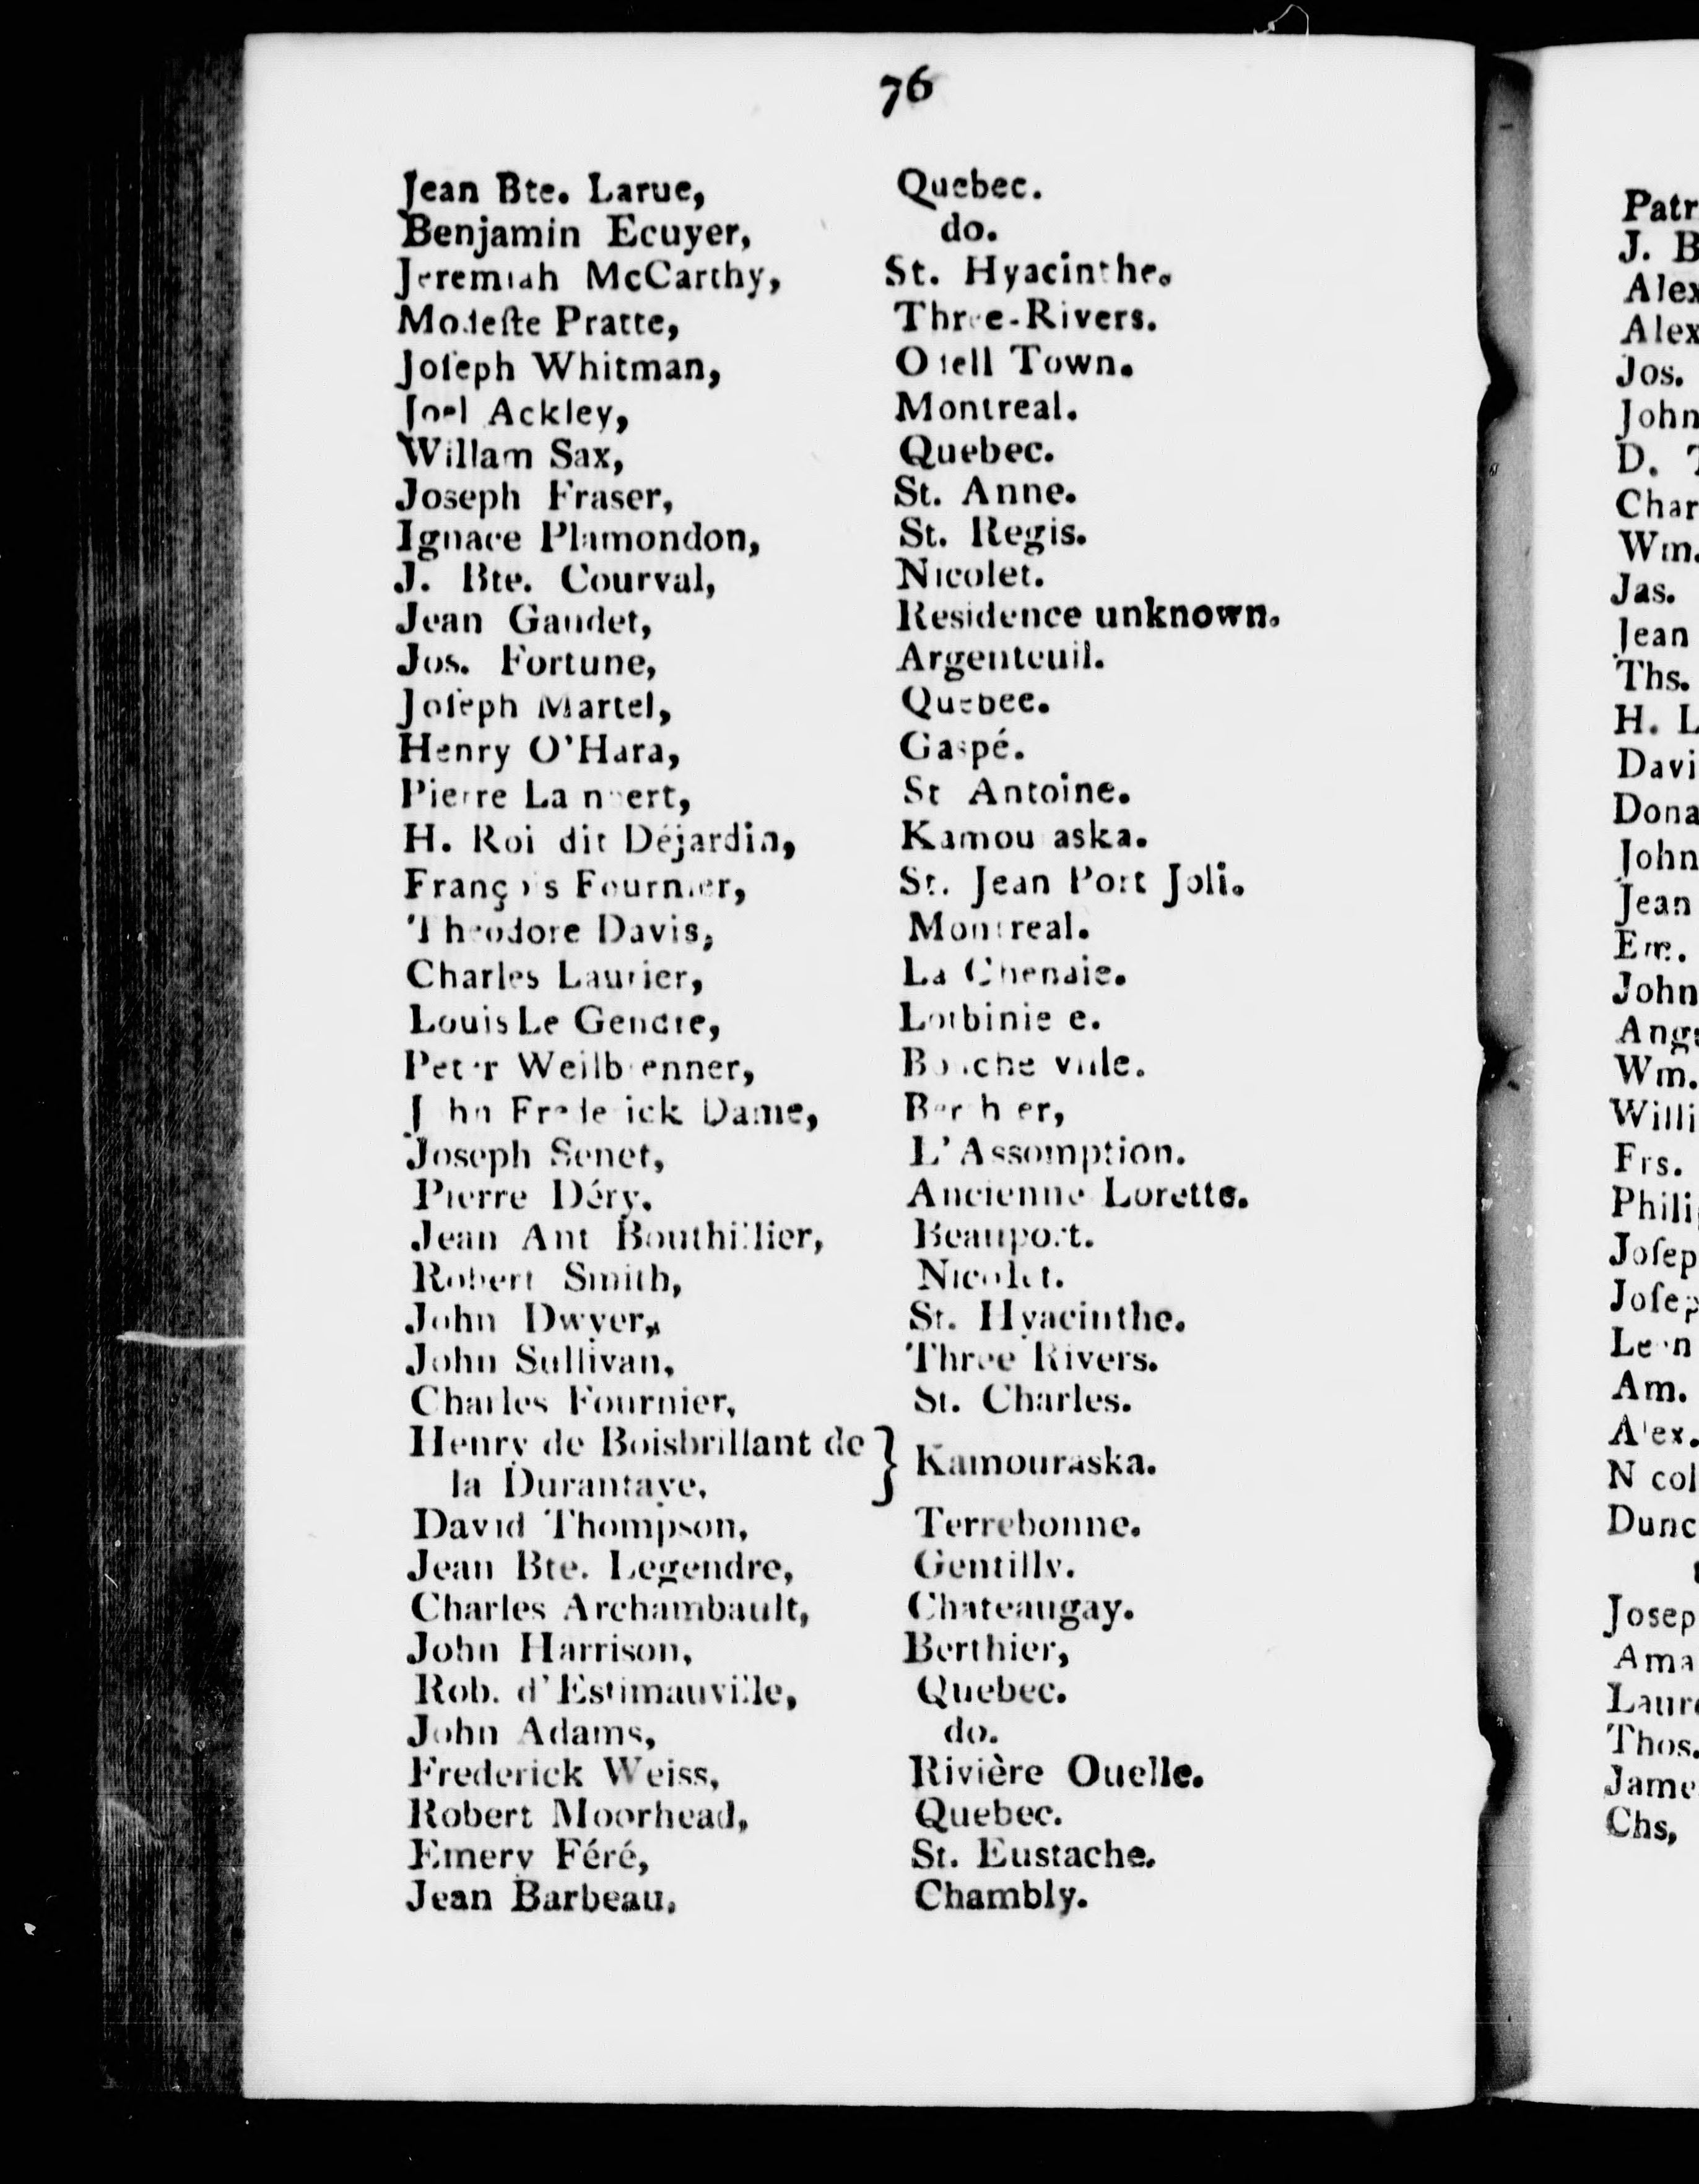 76
Jean Bte. Larue, Quebec.
Benjamin Ecuyer, do.
Jeremiah McCarthy, St. Hyacinthe.
Modeſte Pratte, Three-Rivers.
Joſeph Whitman, Odell Town.
Joel Ackley, Montreal.
Willam Sax, Quebec.
Joseph Fraser, St. Anne.
Ignace Plamondon, St. Regis.
J. Bte. Courval, Nicolet.
Jean Gaudet, Residence unknown.
Jos. Fortune, Argenteuil.
Joſeph Martel, Quebec.
Henry O'Hara, Gaspé.
Pierre Lambert, St Antoine.
H. Roi dit Déjardin, Kamouraska.
François Fournier, St. Jean Port Joli.
Theodore Davis, Montreal.
Charles Laurier, La Chenaie.
Louis Le Gendre, Lotbiniere.
Peter Weilbrenner, Boucherville.
John Frederick Dame, Berthier,
Joseph Senet, L'Assomption.
Pierre Déry. Ancienne Lorette.
Jean Ant Bouthillier, Beauport.
Robert Smith, Nicolet.
John Dwyer, St. Hyacinthe.
John Sullivan, Three Rivers.
Charles Fournier, St. Charles.
Henry de Boisbrillant de
la Durantaye, } Kamouraska.
David Thompson, Terrebonne.
Jean Bte. Legendre, Gentilly.
Charles Archambault, Chateaugay.
John Harrison, Berthier,
Rob. d'Estimauville, Quebec.
John Adams, do.
Frederick Weiss, Rivière Ouelle.
Robert Moorhead, Quebec.
Emery Féré, St. Eustache.
Jean Barbeau, Chambly.
Patr
J. B
Alex
Alex
Jos.
John
D.
Char
Wm.
Jas.
Jean
Ths.
H. L
Davi
Dona
John
Jean
Em.
John
Ang
Wm.
Willi
Frs.
Phili
Joſep
Joſep
Leon
Am.
Alex.
Nicol
Dunc
Josep
Ama
Laure
Thos.
Jame
Chs,